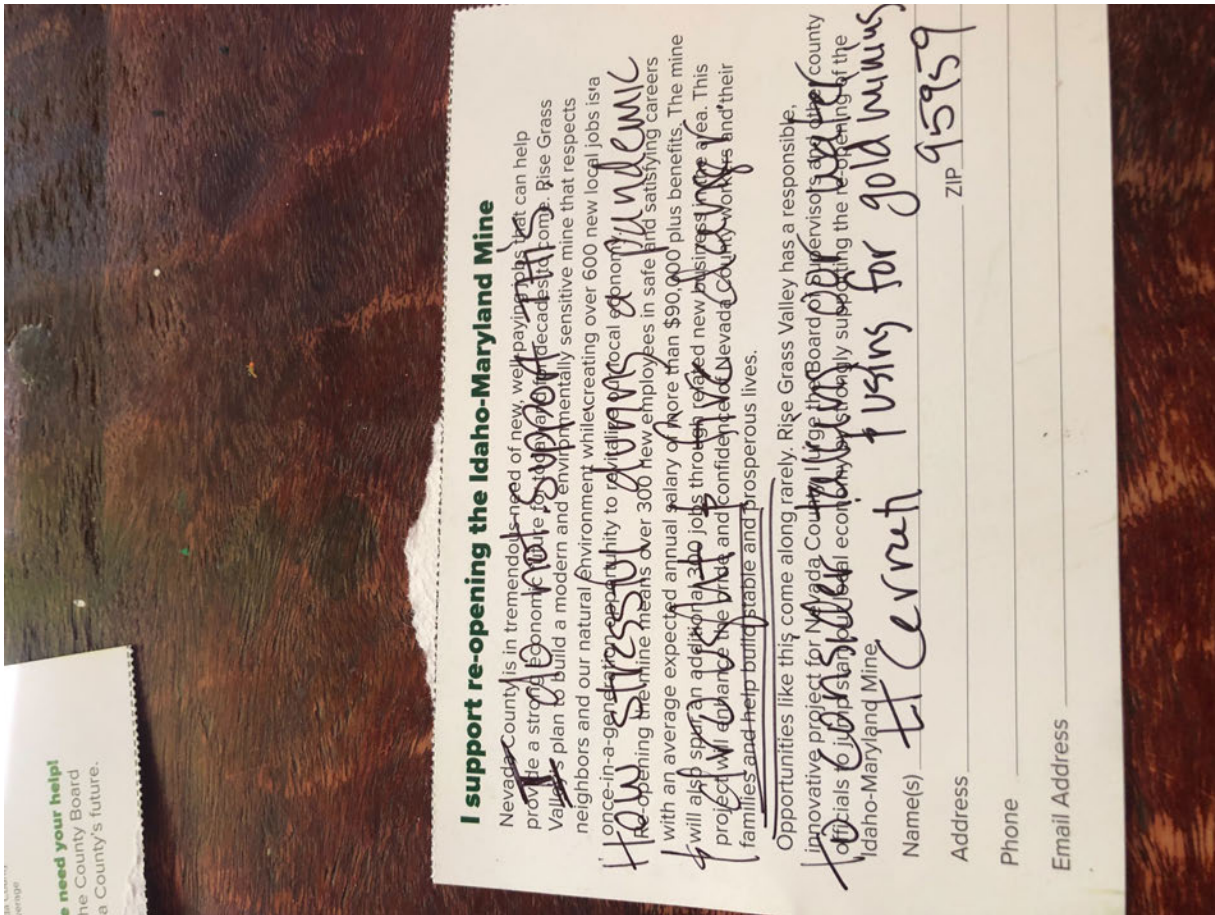 erage
e need your help!
he County Board
a County's future.
I support re-opening the Idaho-Maryland Mine
Nevada County is in tremendous need of new, well-paying jobs that can help
provide a strong economic future for today and for decades to come. Rise Grass
Valley's plan to build a modern and environmentally sensitive mine that respects
neighbors and our natural environment while creating over 600 new local jobs is a
once-in-a-generation opportunity to revitalize our local economy.
Re-opening the mine means over 300 new employees in safe and satisfying careers
with an average expected annual salary of more than $90,000 plus benefits. The mine
will also spur an additional 300 jobs through related new business in the area. This
project will enhance the pride and confidence of Nevada County workers and their
families and help build stable and prosperous lives.
Opportunities like this come along rarely. Rise Grass Valley has a responsible,
innovative project for Nevada County. I urge the Board of Supervisors and other county
officials to jumpstart our local economy by strongly supporting the re-opening of the
Idaho-Maryland Mine.
I do not support this
How stressful during a pandemic
& drought & fire danger
to consider our water
& using for gold mining
Name(s)
Address ZIP 95959
Phone
Email Address